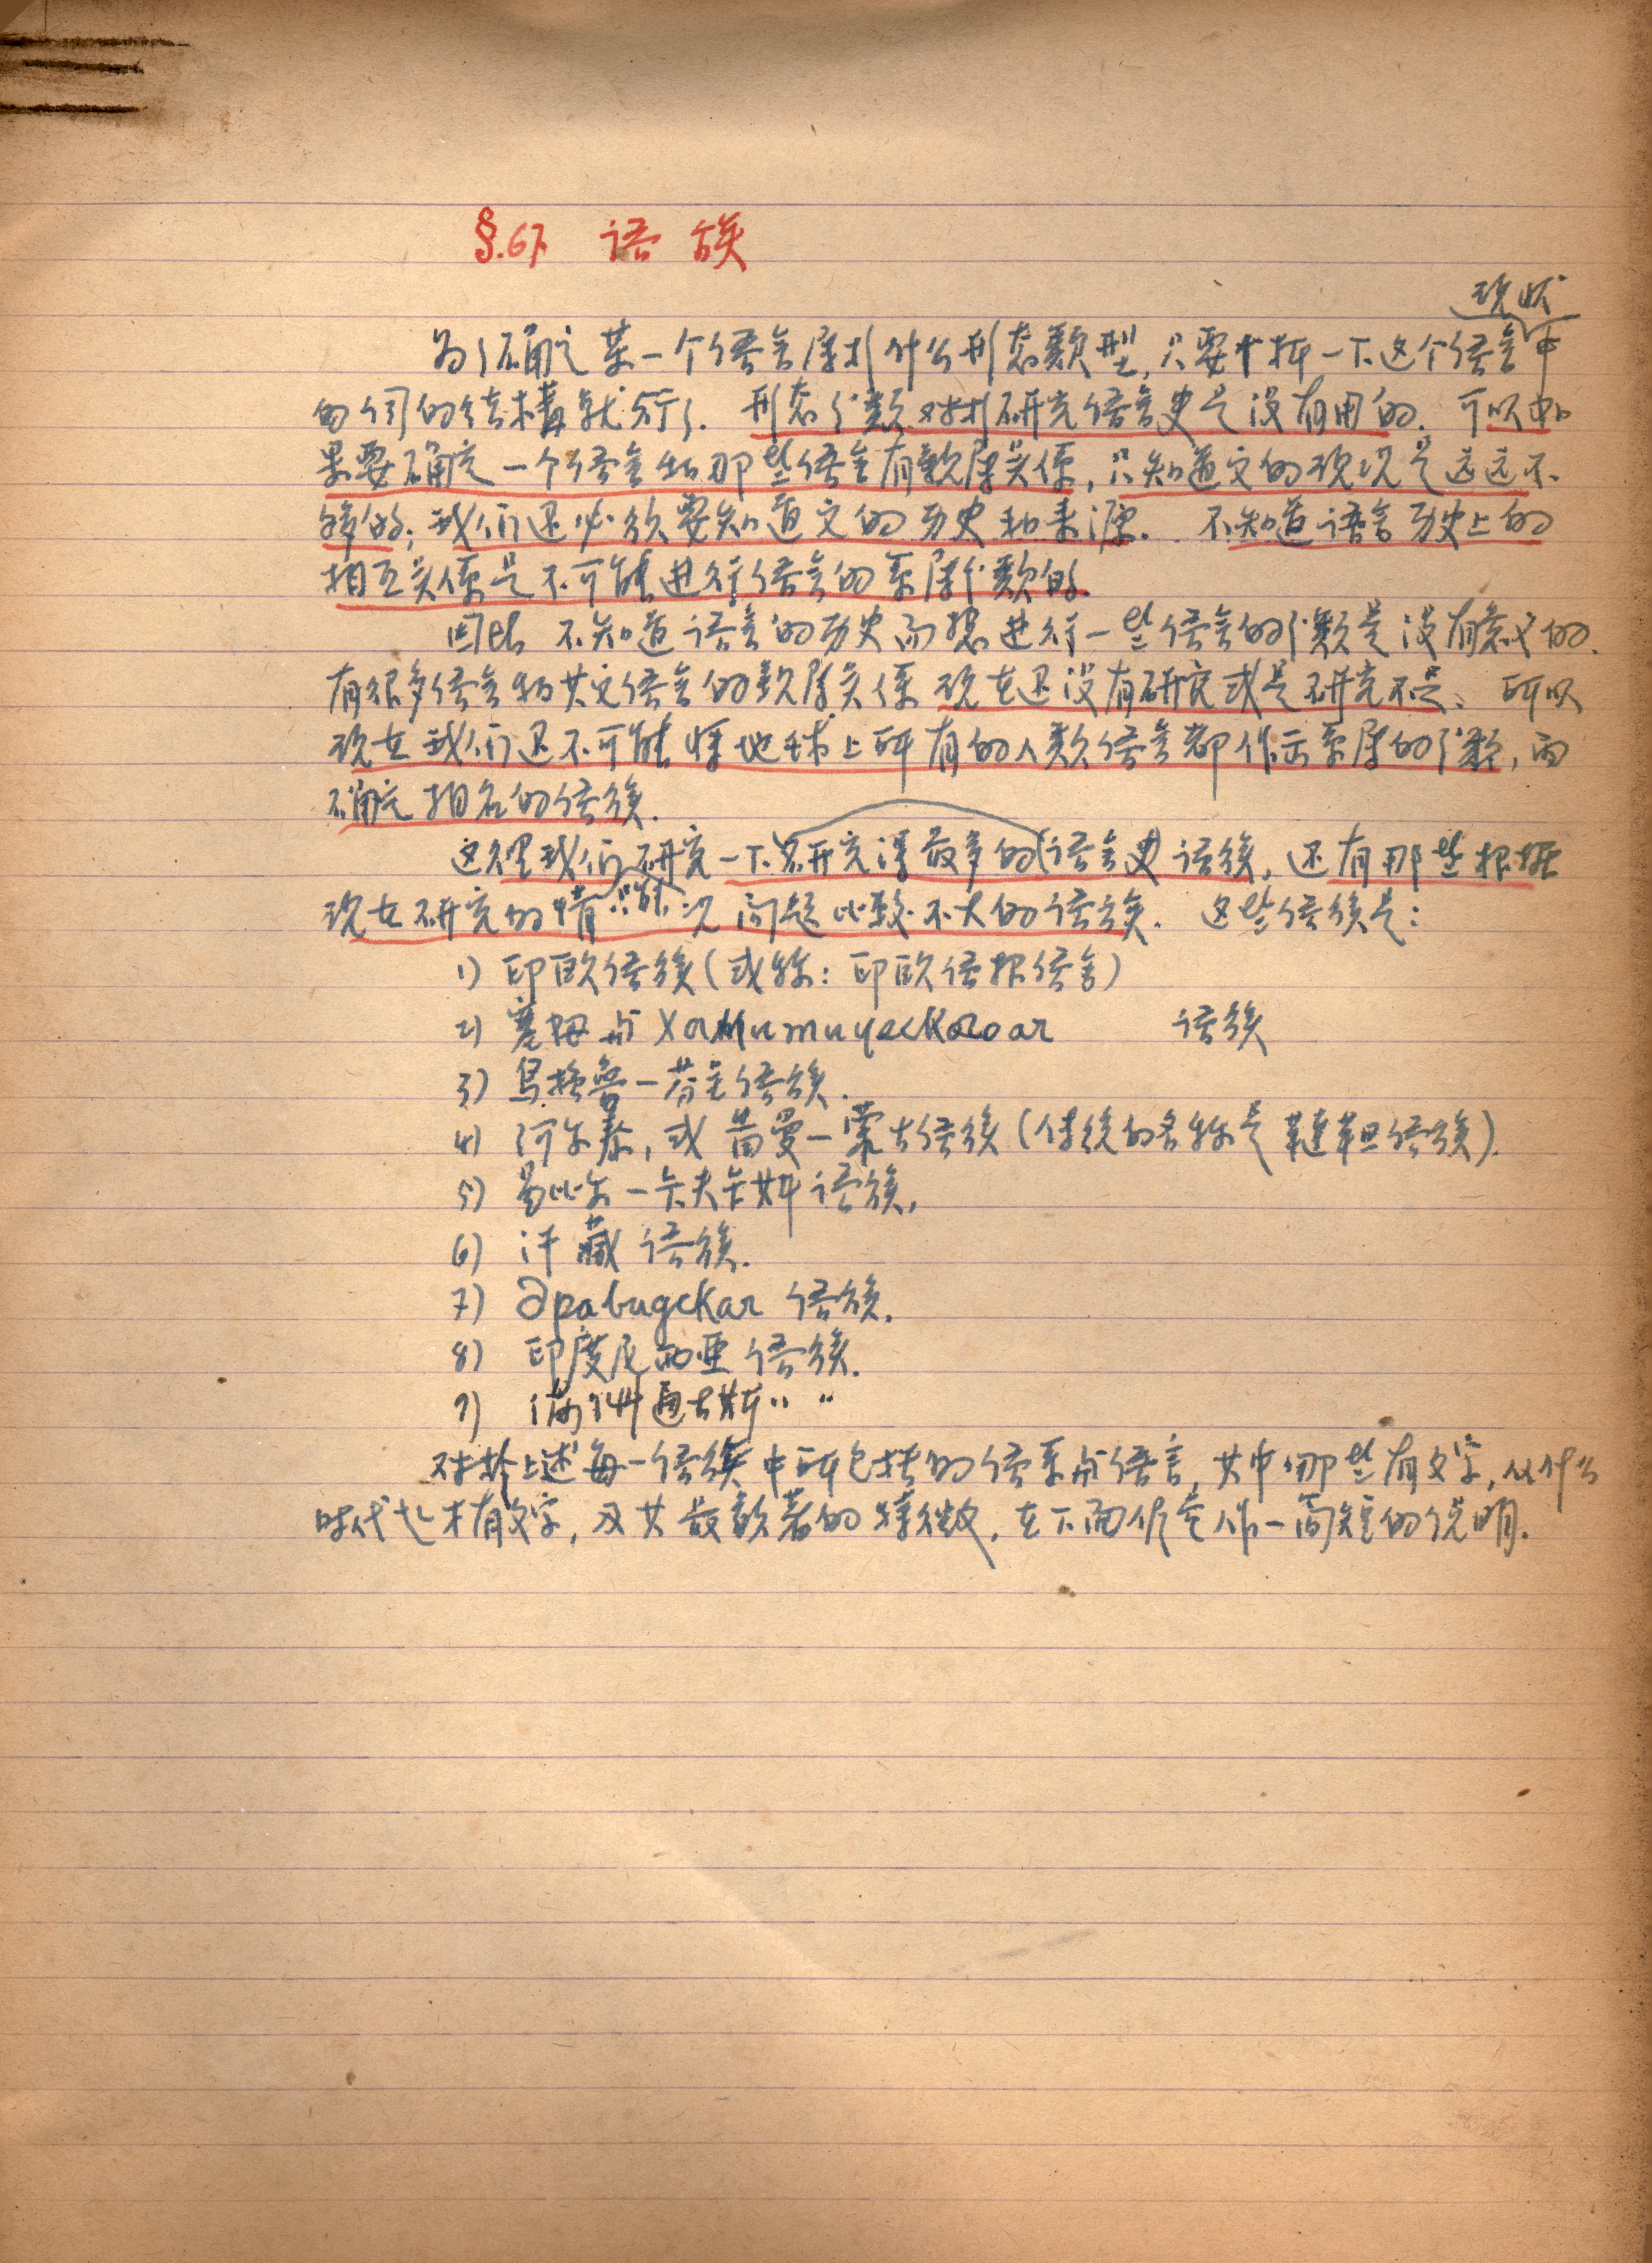 §.67. 语族
现状
为了确定某一个语言属于什么形态类型,只要分析一下这个语言中
的词的结構就够了. 形态分类对于研究语言史是没有用的. 可以如
果要确定一个语言和那些语言有親属关係,只知道它的现况是远远不
够的;我们还必须要知道它的历史和来源. 不知道语言历史上的
相互关係是不可能进行语言的系属分类的.
因此 不知道语言的历史而想进行一些语言的分类是没有意义的.
有很多语言和其它语言的親属关係现在还没有研究或是研究不足、所以
现在我们还不可能将地球上所有的人类语言都作出系属的分类,而
确定相应的语族.
这里我们研究一下(研究得最多的(语言史)语族,还有那些根据
现在研究的情况问题比较不大的语族. 这些语族是:
1) 印欧语族(或称:印欧语根语言)
2) 塞姆与 Хамитическогоая 语族
3) 烏拉魯一芬兰语族.
4) 阿尔泰,或 茴曼一蒙古语族(传统的名称是 韃靼语族).
5) 易比尔一卡夫卡斯语族,
6) 汗藏 语族.
7) Дравидская 语族.
8) 印度尼西亚语族.
9) 满洲通古斯〃 〃
对於上述每一语族中所包括的语系与语言,其中哪些有文字,从什么
时代起才有文字,及其最显著的特徵,在下面作一简短的说明.